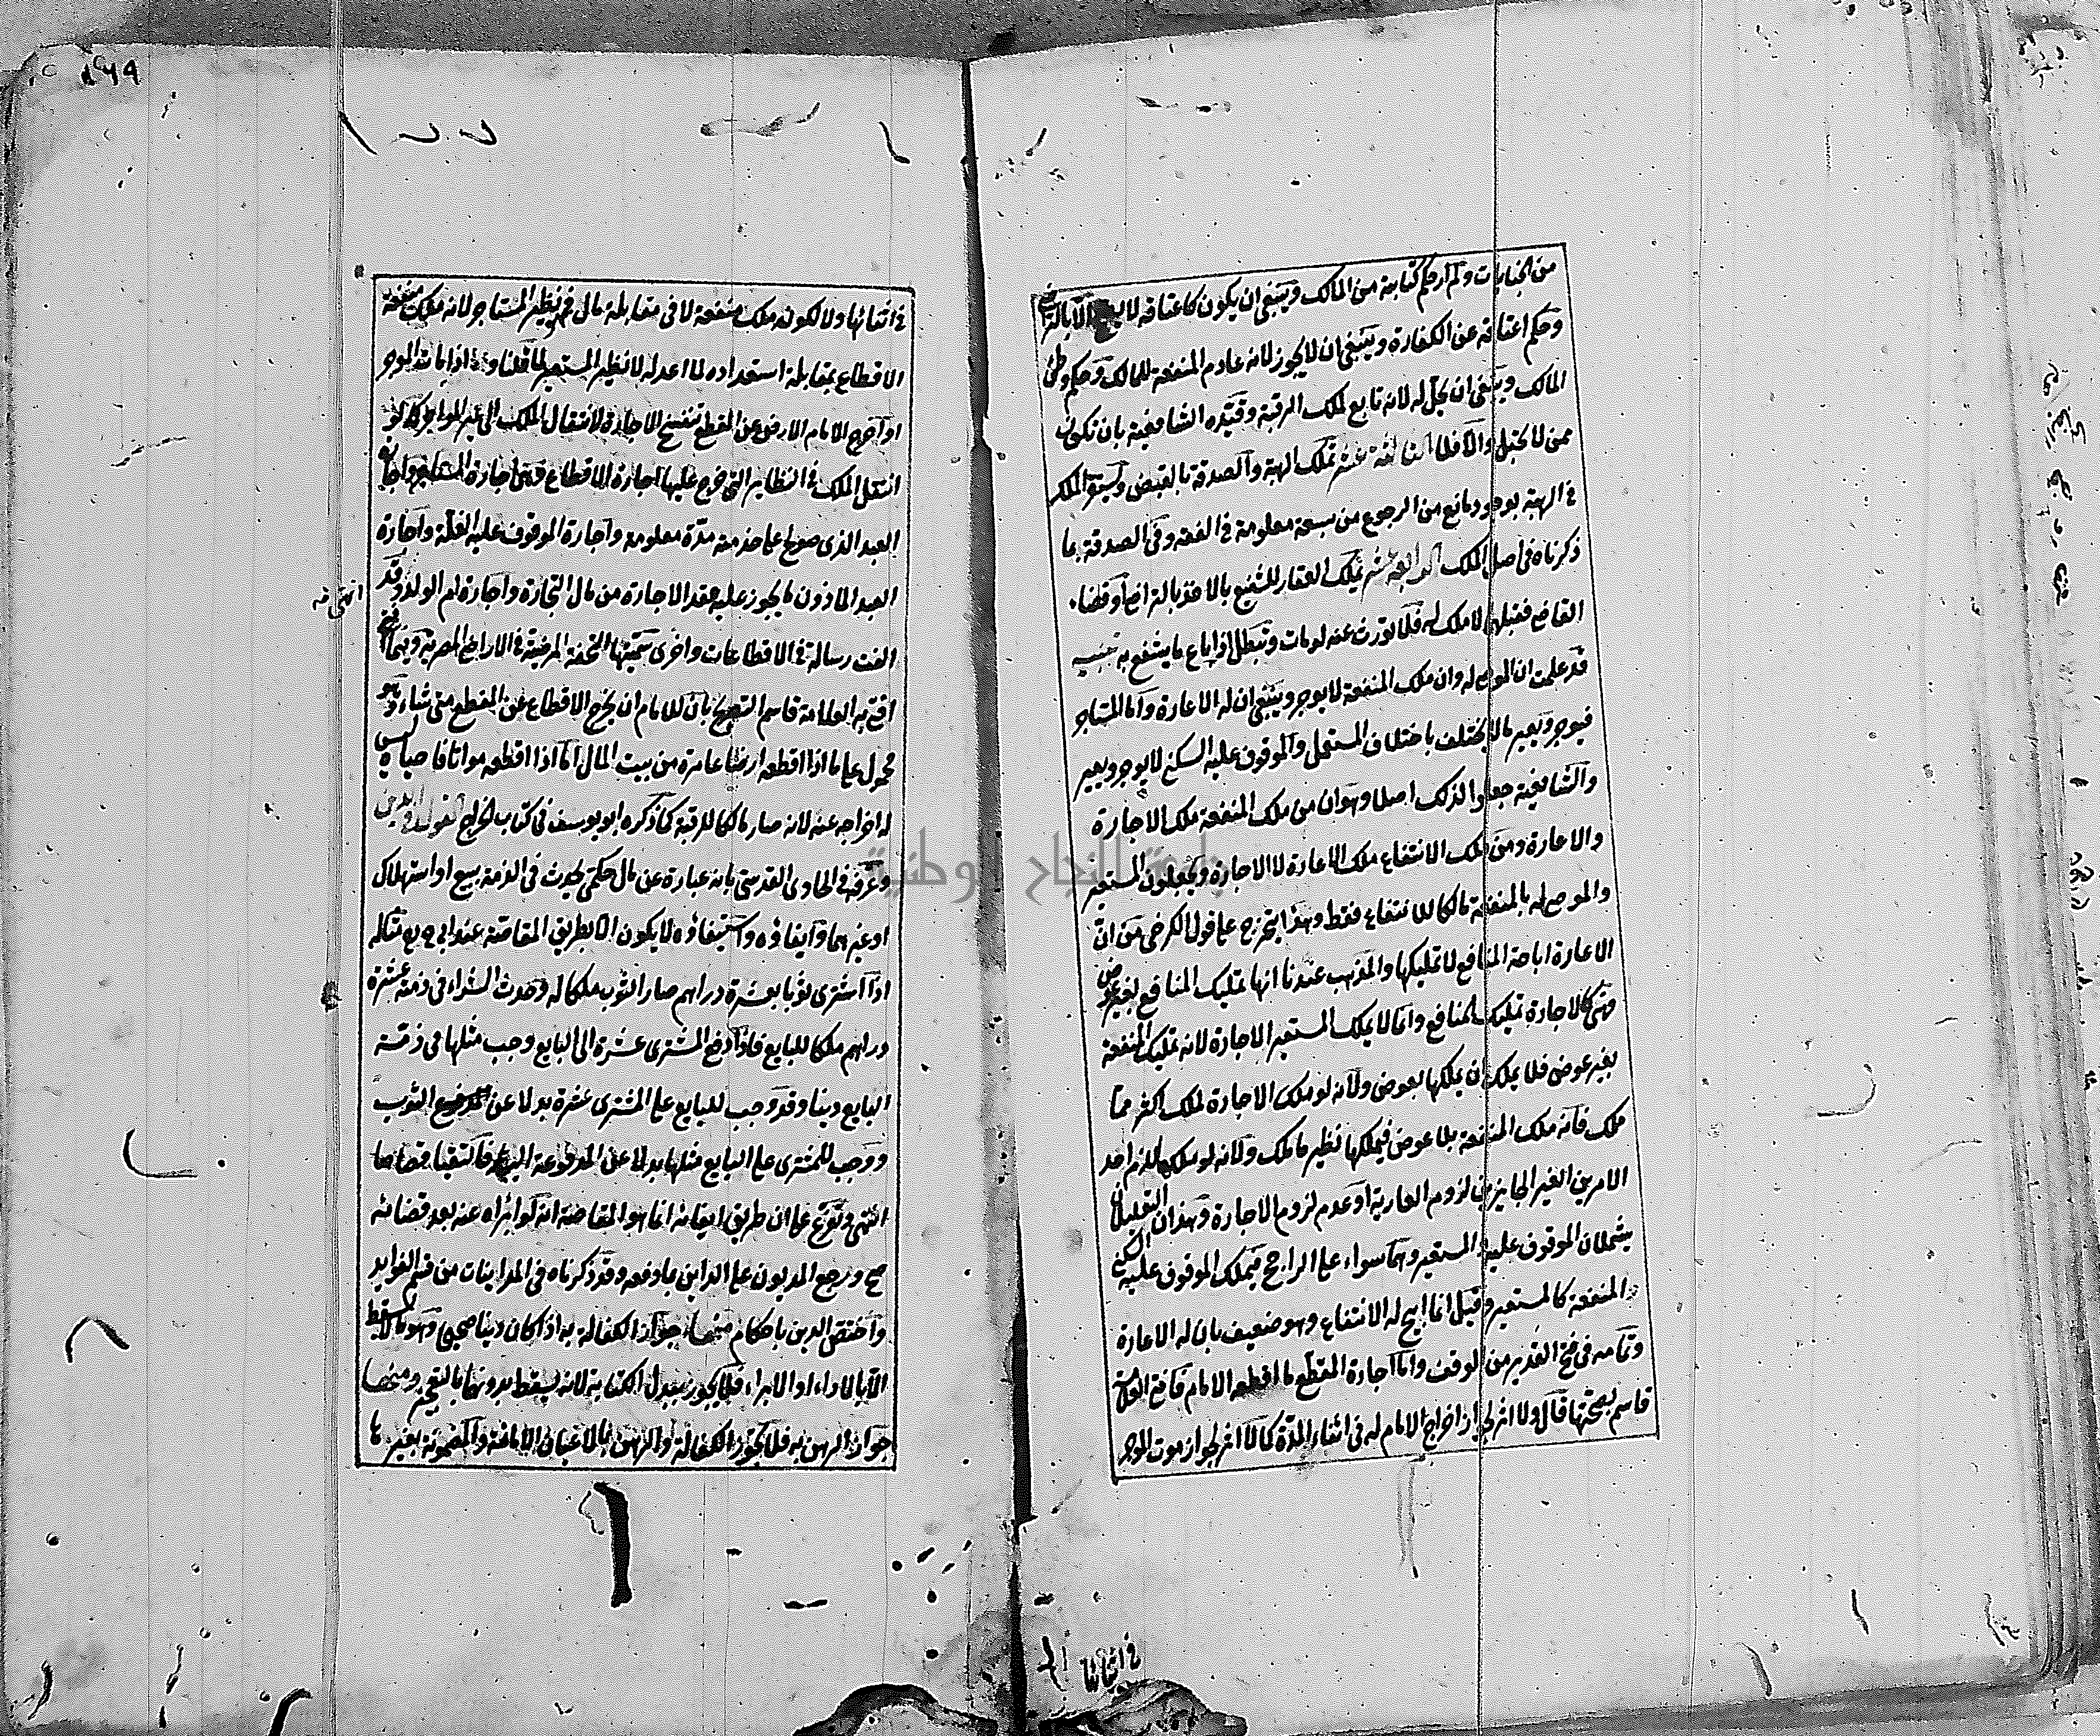 من الجنايات ولم ار حكم كتابته من المالك وينبغي ان يكون كاعتاقه لا الا بالتراضي
وحكم اعتاقه عن الكفارة وينبغي ان لا يجوز لانه عادم المنفعة للمالك وحكم وطئ
المالك وينبغي ان يحل له لانه تابع لملك الرقبة وقيده الشافعية بان تكون
ممن لا تحبل والا فلا الثالثة عشر تملك الهبة والصدقة بالقبض ويستقر الملك
في الهبة بوجود مانع من الرجوع من سبعة معلومة في الفقه وفي الصدقة بما
ذكرناه في اصل الملك الرابعة عشر يملك العقار للشفيع بالاخذ بالتراضي او قضاء
القاضي فقبلهما لا ملك له فلا تورث عنه لو مات وتبطل اذا باع ما يشفع به تنبيه
قد علمت ان الموصى له وان ملك المنفعة لا يوجر وينبغي ان له الاعارة واما المستاجر
فيوجر ويعير ما لا يختلف باختلاف المستعمل والموقوف عليه السكنى لا يوجر ويعير
والشافعية جعلوا لذلك اصلا وهو ان من ملك المنفعة ملك الاجارة
والاعارة ومن ملك الانتفاع ملك الاعارة لا الاجارة ويجعلون المستعير
والموصى له بالمنفعة مالكا للانتفاع فقط وهذا يتخرج على قول الكرخي من ان
الاعارة اباحة المنافع لا تمليكها والمذهب عندنا انها تمليك المنافع بغير عوض
فهي كالاجارة تمليك المنافع وانما لا يملك المستعير الاجارة لانه تمليك المنفعة
بغير عوض فلا يملك ان يملكها بعوض ولانه لو ملك الاجارة لملك اكثر مما
ملك فانه ملك المنفعة بلا عوض فيملكها نظير ما ملك ولانه لو ملكها للزم احد
الامرين الغير الجايزين لزوم العارية او عدم لزوم الاجارة وهذان التعليلان
يشملان الموقوف عليه والمستعير وهما سواء على الراجح فيملك الموقوف عليه السكنى
المنفعة كالمستعير وقيل انما ابيح له الانتفاع وهو ضعيف بان له الاعارة
وتمامه في فتح القدير من الوقف واما اجارة المقطع ما اقطعه الامام فافتى العلامة
قاسم بصحتها قال ولا اثر لجواز اخراج الامام له في اثناء المدة كما لا اثر لجواز موت الموجر
في اثنائها
في اثنائها ولا لكونه ملك منفعة لا في مقابلة مال فهو نظير المستاجر لانه ملك منفعة
الاقطاع بمقابلة استعداده لما اعد له لا نظير المستعير لما قلنا واذا مات الموجر
او اخرج الامام الارض عن المقطع تنفسخ الاجارة لانتقال الملك الى غير المواجر كما لو
انتقل الملك في النظاير التي خرج عليها اجارة الاقطاع وهي اجارة المستاجر واجارة
العبد الذي صولح على خدمته مدة معلومة واجارة الموقوف عليه الغلة واجارة
العبد الماذون ما يجوز عليه عقد الاجارة من مال التجارة واجارة ام الولد وقد
انتهى
الفت رسالة في الاقطاعات واخرى سميتها التحفة المرضية في الاراضي المصرية وفيما
افتى به العلامة قاسم التصريح بان للامام ان يخرج الاقطاع عن المقطع متى شاء وهو
محمول على ما اذا اقطعه ارضا عامرة من بيت المال اما اذا اقطعه مواتا فاحياه ليس
له اخراجه عنه لانه صار مالكا للرقبة كما ذكره ابو يوسف في كتاب الخراج القول في الدين
وعرفه في الحاوي القدسي بانه عبارة عن مال حكمي يحدث في الذمة ببيع او استهلاك
او غيرهما وايفاؤه واستيفاؤه لا يكون الا بطريق المقاصة عند ابي مثاله
اذا اشترى ثوبا بعشرة دراهم صار الثوب ملكا له وحدث الشراء في ذمته عشرة
دراهم ملكا للبايع فاذا دفع المشتري عشرة الى البايع وجب مثلها في ذمة
البايع دينا وقد وجب للبايع على المشتري عشرة بدلا عن الثوب
ووجب للمشتري على البايع مثلها بدلا عن المدفوعة اليه فالتقيا قصاصا
انتهى وتفرع على ان طريق ايفائه انما هو المقاصة انه لو ابراه عنه بعد قضائه
صح ورجع المديون على الداين بما دفعه وقد ذكرناه في المداينات من قسم الفوايد
واختص الدين باحكام منها جواز الكفالة به اذا كان دينا صحيحا وهو ما لا يسقط
الا بالاداء او الابراء فلا يجوز ببدل الكتابة لانه يسقط بدونهما بالتعجيز ومنها
جواز الرهن به فلا تجوز الكفالة والرهن بالاعيان الامانة والمضمونة بغيرها
جامعة النجاح الوطنية